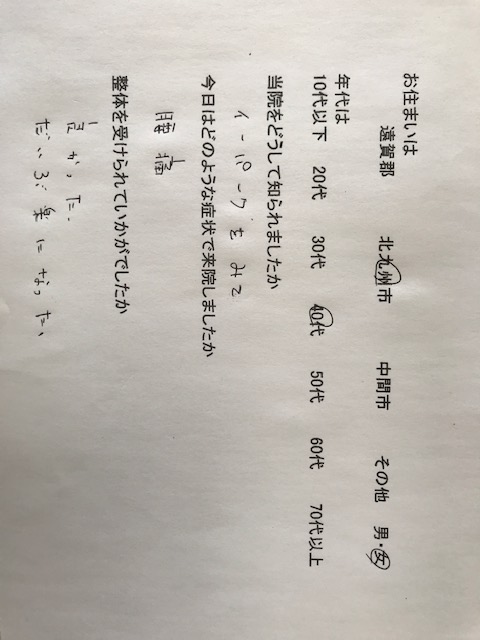 お住まいは
遠賀郡 北九州市 中間市 その他 男・女
年代は
10代以下 20代 30代 40代 50代 60代 70代以上
当院をどうして知られましたか
イーパークをみて
今日はどのような症状で来院しましたか
腰痛
整体を受けられていかがでしたか
良かった。
だいぶ楽になった。